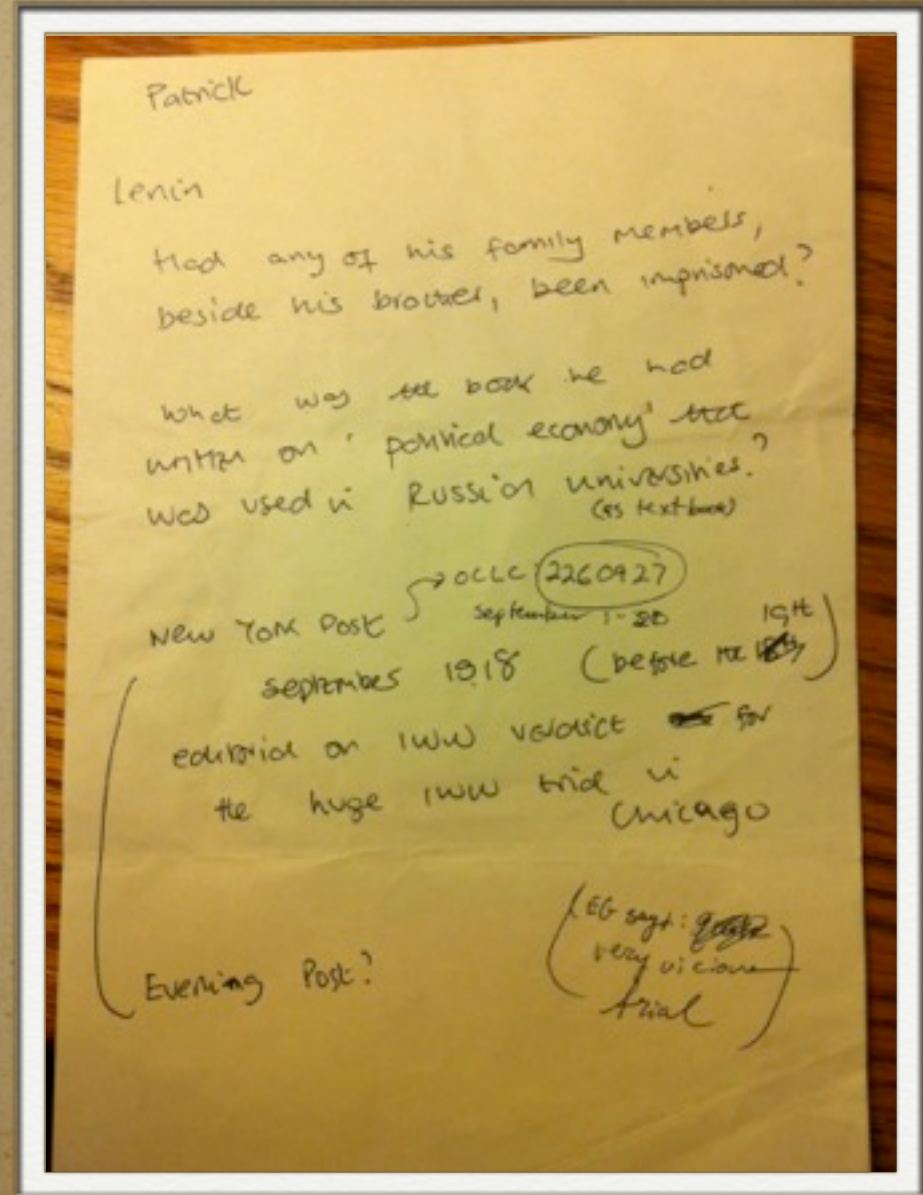 Patrick
Lenin
Had any of his family members,
beside his brother, been imprisoned?
What was the book he had
written on 'political economy' that
was used in Russian universities?
(as textbook)
OCLC 2260927
New York Post
September 1-20
19th
September 1918 (before the
editorial on IWW verdict for
the huge IWW trial in
Chicago
(EG says:
very vicious
trial)
Evening Post?